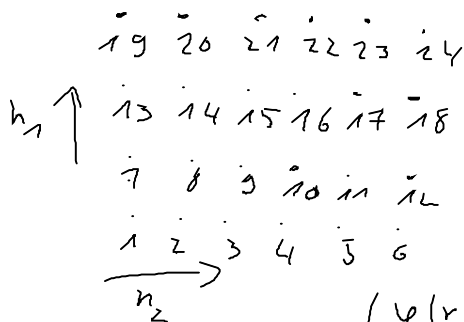 19 20 21 22 23 24
h₁ 13 14 15 16 17 18
7 8 9 10 11 12
1 2 3 4 5 6
n₂